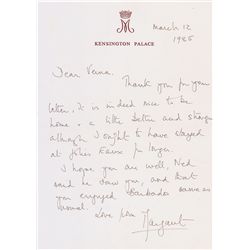 M
March 12
1985
KENSINGTON PALACE
Dear Verna.
Thank you for your
letter, it is indeed nice to be
home - a little better and stronger
although I ought to have stayed
at Jolies Eaux for longer.
I hope you are well, Ned
said he saw you, and that
you enjoyed Barbados same as
usual.
Love from
Margaret